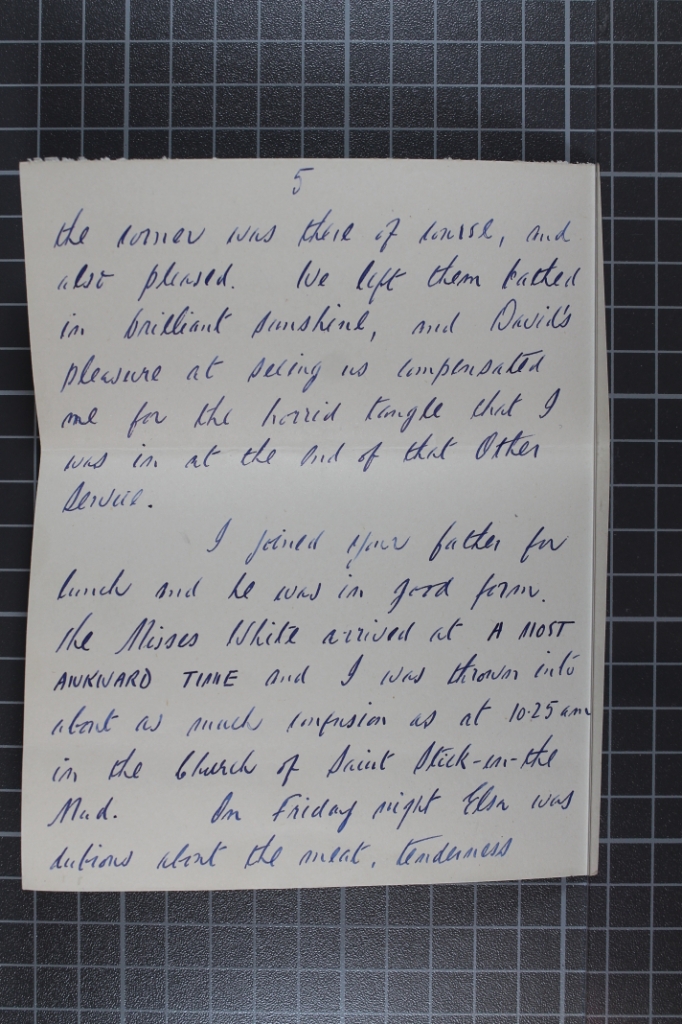 5
the corner was there of course, and
also pleased. We left them bathed
in brilliant sunshine, and David's
pleasure at seeing us compensated
me for the horrid tangle that I
was in at the end of that Other
Service.
I joined your father for
lunch and he was in good form.
The Misses White arrived at A MOST
AWKWARD TIME and I was thrown into
about as much confusion as at 10.25 am
in the Church of Saint Stick-in-the
Mud. On Friday night Elsa was
dubious about the meat, tenderness